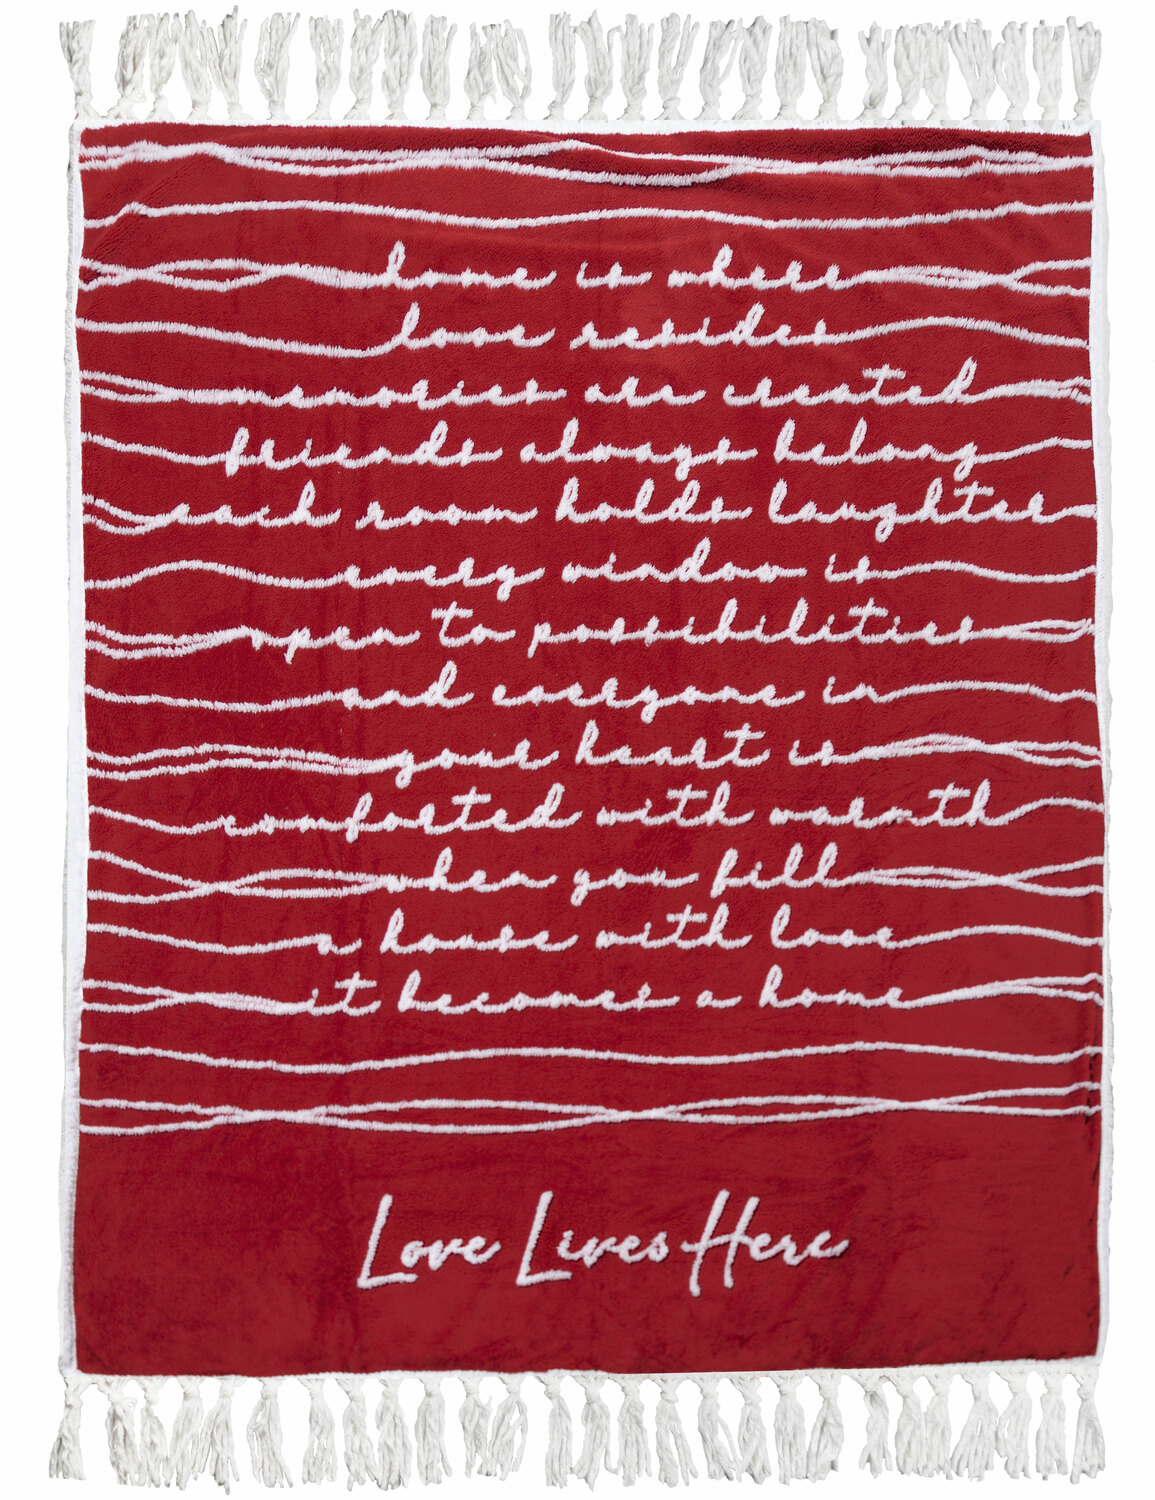 home is where
love resides
memories are created
friends always belong
each room holds laughter
every window is
open to possibilities
and everyone in
your heart is
comforted with warmth
when you fill
a house with love
it becomes a home
Love Lives Here